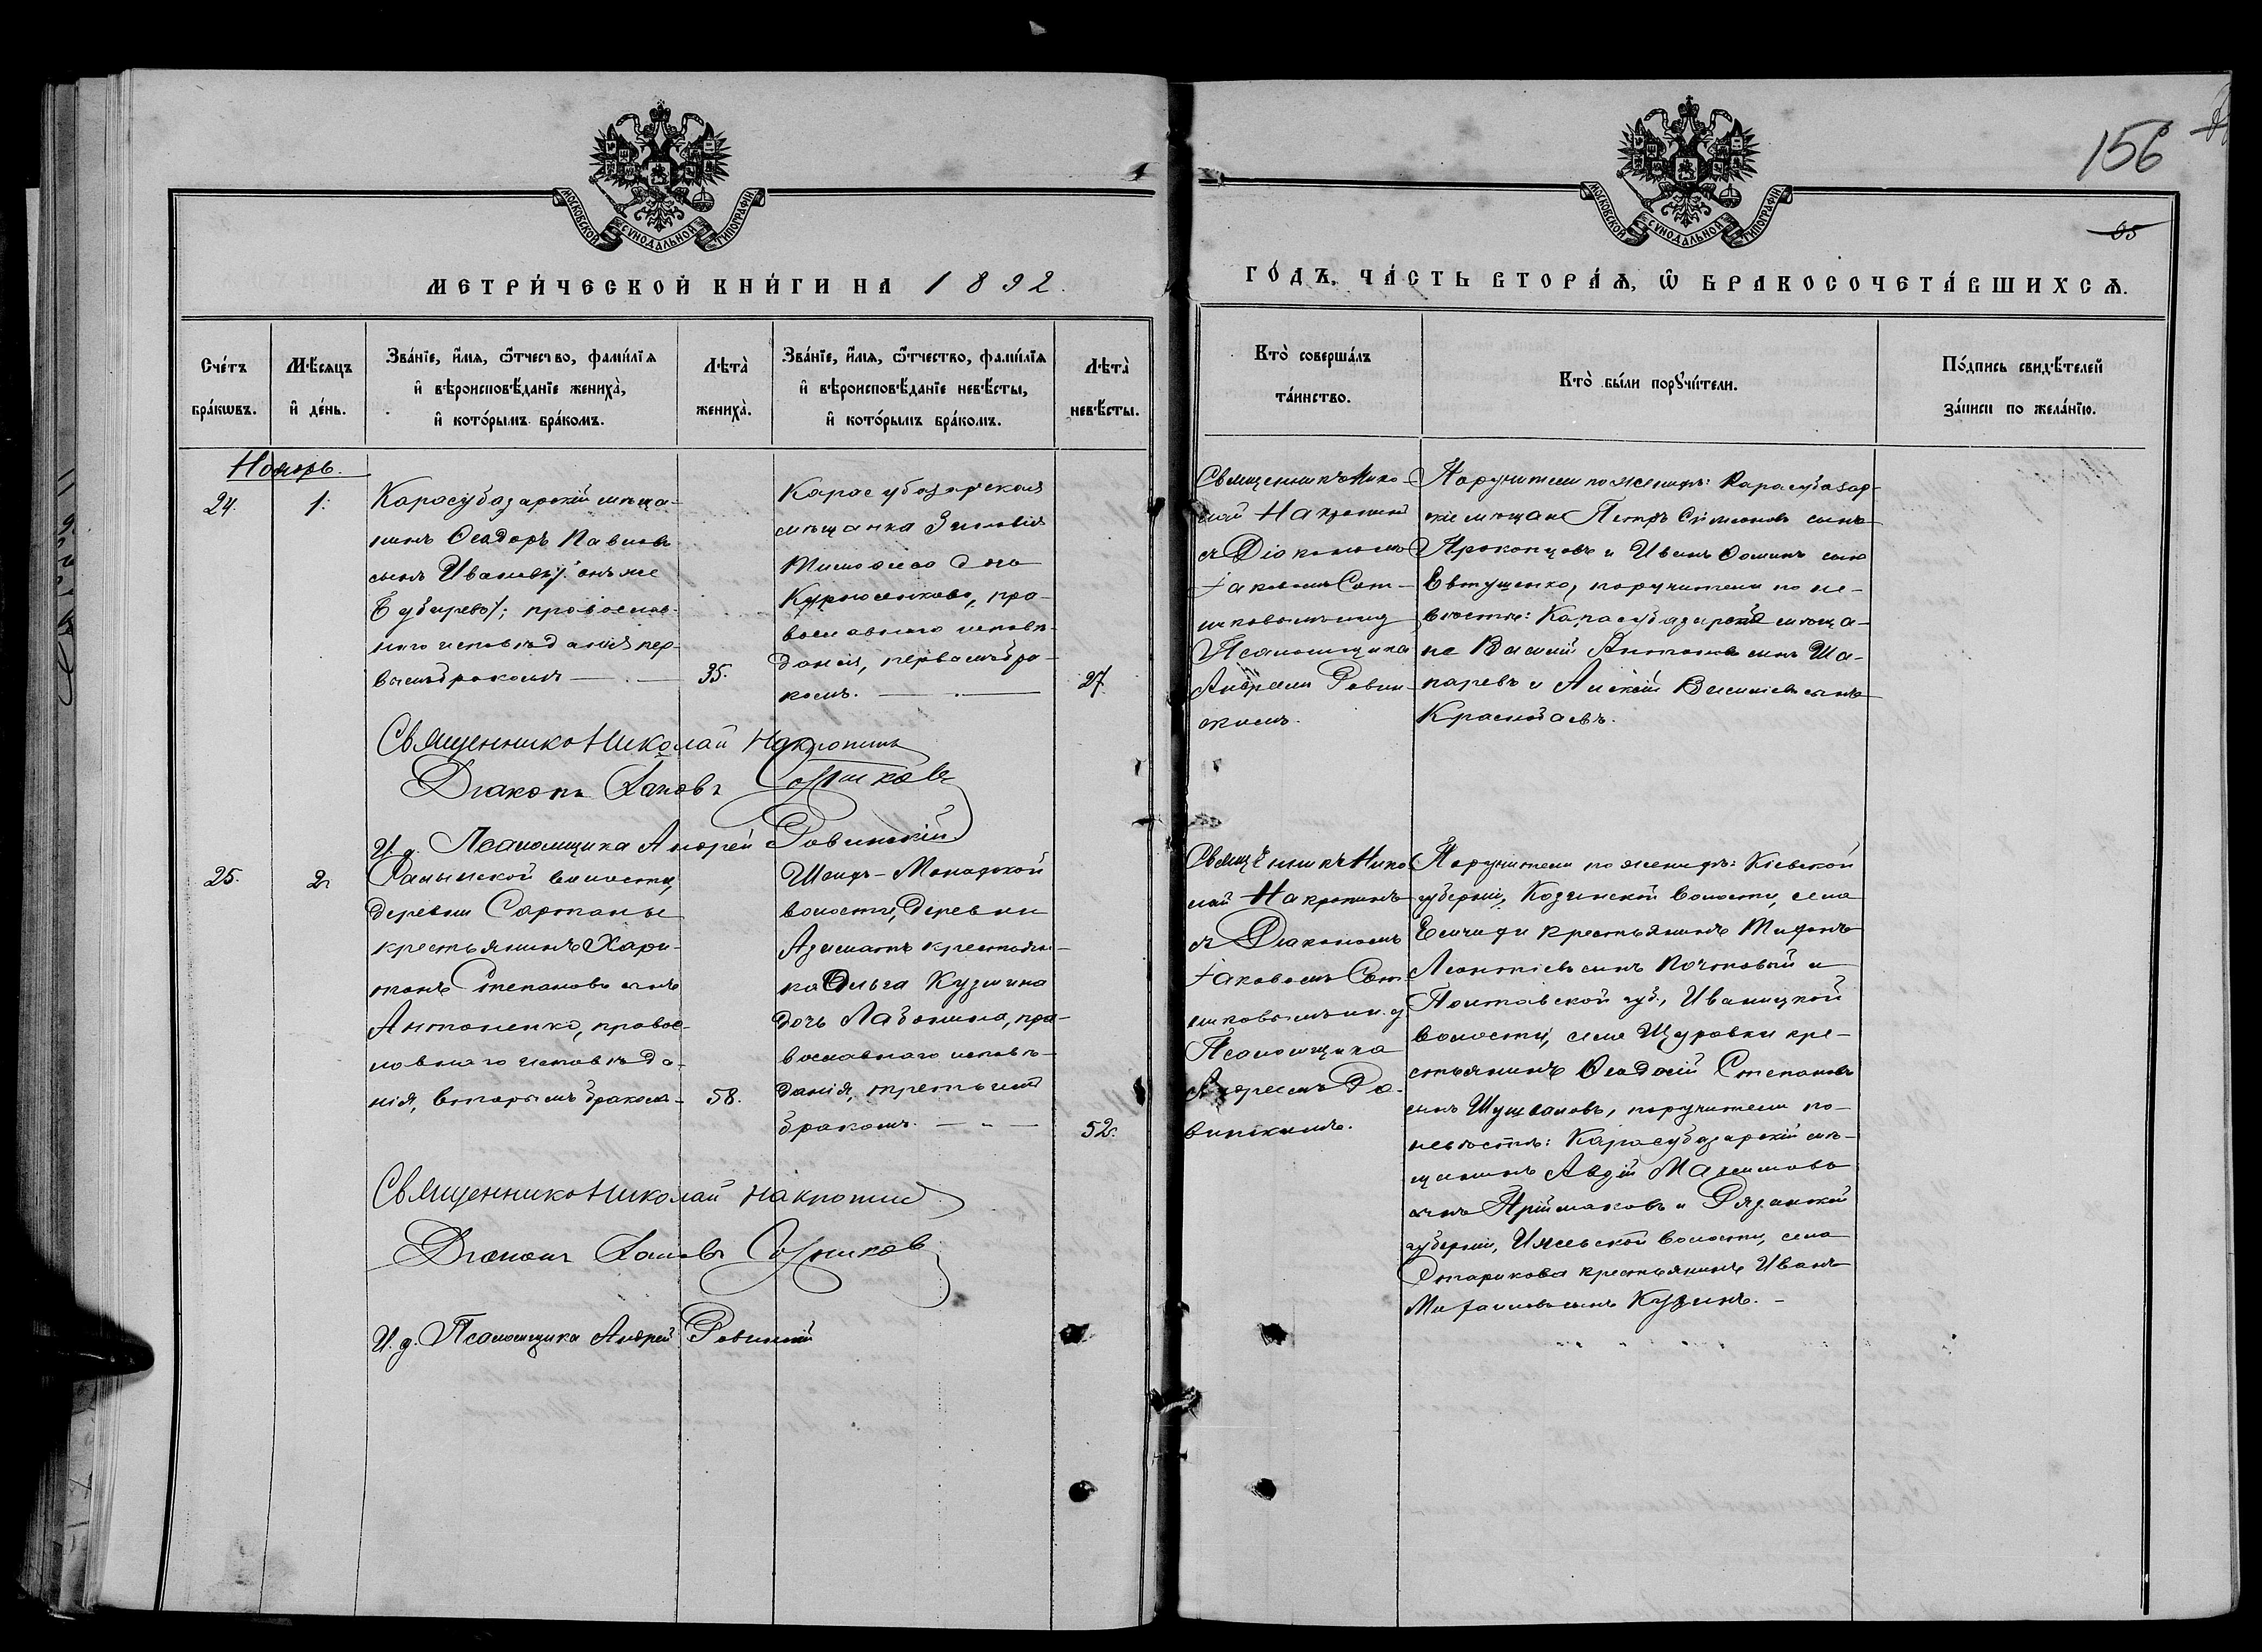 156
МОСКОВСКОЙ СѴНОДАЛЬНОЙ ТИПОГРАФІИ
МОСКОВСКОЙ СѴНОДАЛЬНОЙ ТИПОГРАФІИ
МЕТРИ́ЧЕСКОЙ КНИ́ГИ НА 1892.
ГО́ДЪ, ЧА́СТЬ ВТОРА́Ѧ, Ѽ БРАКОСОЧЕТА́ВШИХСѦ.
Сче́тъ
бра́кѡвъ.
Мѣ́сяцъ
и҆ де́нь.
Зва́нїе, и҆́мѧ, ѻ҆́тчество, фамі́лїѧ
и҆ вѣроисповѣ́данїе жениха̀,
и҆ кото́рымъ бра́комъ.
Лѣта̀
жениха̀.
Зва́нїе, и҆́мѧ, ѻ҆́тчество, фамі́лїѧ
и҆ вѣроисповѣ́данїе невѣ́сты,
и҆ кото́рымъ бра́комъ.
Лѣта̀
невѣ́сты.
Кто̀ соверша́лъ
та́инство.
Кто̀ бы́ли порꙋчи́тели.
По́дпись свидѣ́телей
за́писи по жела́нїю.
Ноябрь.
24.
1.
Карасубазарскій мѣща-
нинъ Ѳеодоръ Павловъ
сынъ Ивановъ /: онъ же
Бубыревъ/; православ-
наго исповѣданія пер-
вымъ бракомъ
35.
Карасубазарская
мѣщанка Зиновія
Тимоѳеева дочь
пра-
вославнаго исповѣ-
данія, первымъ бра-
комъ.
27.
Священникъ Нико-
лай Накропинъ
съ Діакономъ
Іаковомъ Сот-
никовымъ и и. д.
Псаломщика
Андреемъ Ровин-
скимъ.
Поручители по женихѣ: Карасубазар-
скіе мѣщане Петръ Симеоновъ сынъ
Прокопцовъ и Иванъ Ѳоминъ сынъ
Евтушенко, поручители по не-
вѣстѣ: Карасубазарскіе мѣща-
не Василій Антоновъ сынъ Ша-
паревъ и Алексій Василіевъ сынъ
Священникъ Николай Накропинъ
Діаконъ Іаковъ Сотниковъ
И. д. Псаломщика Андрей Ровинскій
25.
2.
волости,
деревни Сартаны
крестьянинъ Хари-
тонъ Степановъ сынъ
Антоненко, правос-
лавнаго исповѣда-
нія, вторымъ бракомъ
58.
Шеихъ-Монахской
волости, деревни
Азаматъ крестьян-
ка Ольга Кузмина
дочь Лабонина, пра-
вославнаго исповѣ-
данія, третьимъ
бракомъ.
52.
Священникъ Нико-
лай Накропинъ
съ Діакономъ
Іаковомъ Сот-
никовымъ и и. д.
Псаломщика
Андреемъ Ро-
винскимъ.
Поручители по женихѣ: Кіевской
губерніи, Козинской волости, села
Емчихи крестьянинъ Тихонъ
Леонтіевъ сынъ Почтовый и
Полтавской губ., Иваницкой
волости, села Щуровки кре-
стьянинъ Ѳеодосій Степановъ
сынъ поручители по
невѣстѣ: Карасубазарскій мѣ-
щанинъ Авдій Максимовъ
сынъ Пріймаковъ и Рязанской
губерніи, Ижевской волости, села
Старикова крестьянинъ Иванъ
Михаиловъ сынъ Кузинъ.
Священникъ Николай Накропинъ
Діаконъ Іаковъ Сотниковъ
И. д. Псаломщика Андрей Ровинскій